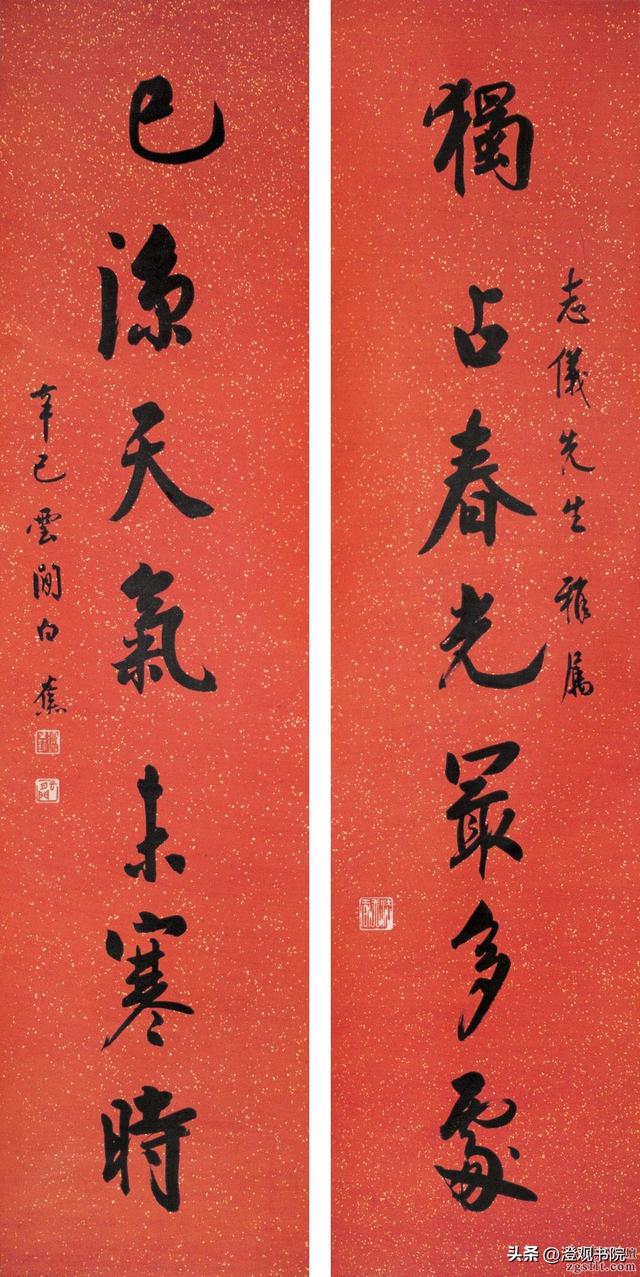 獨占春光最多處
志儀先生雅属
已涼天氣未寒時
辛巳雲間白蕉
头条@澄观书院
zgsflt.com